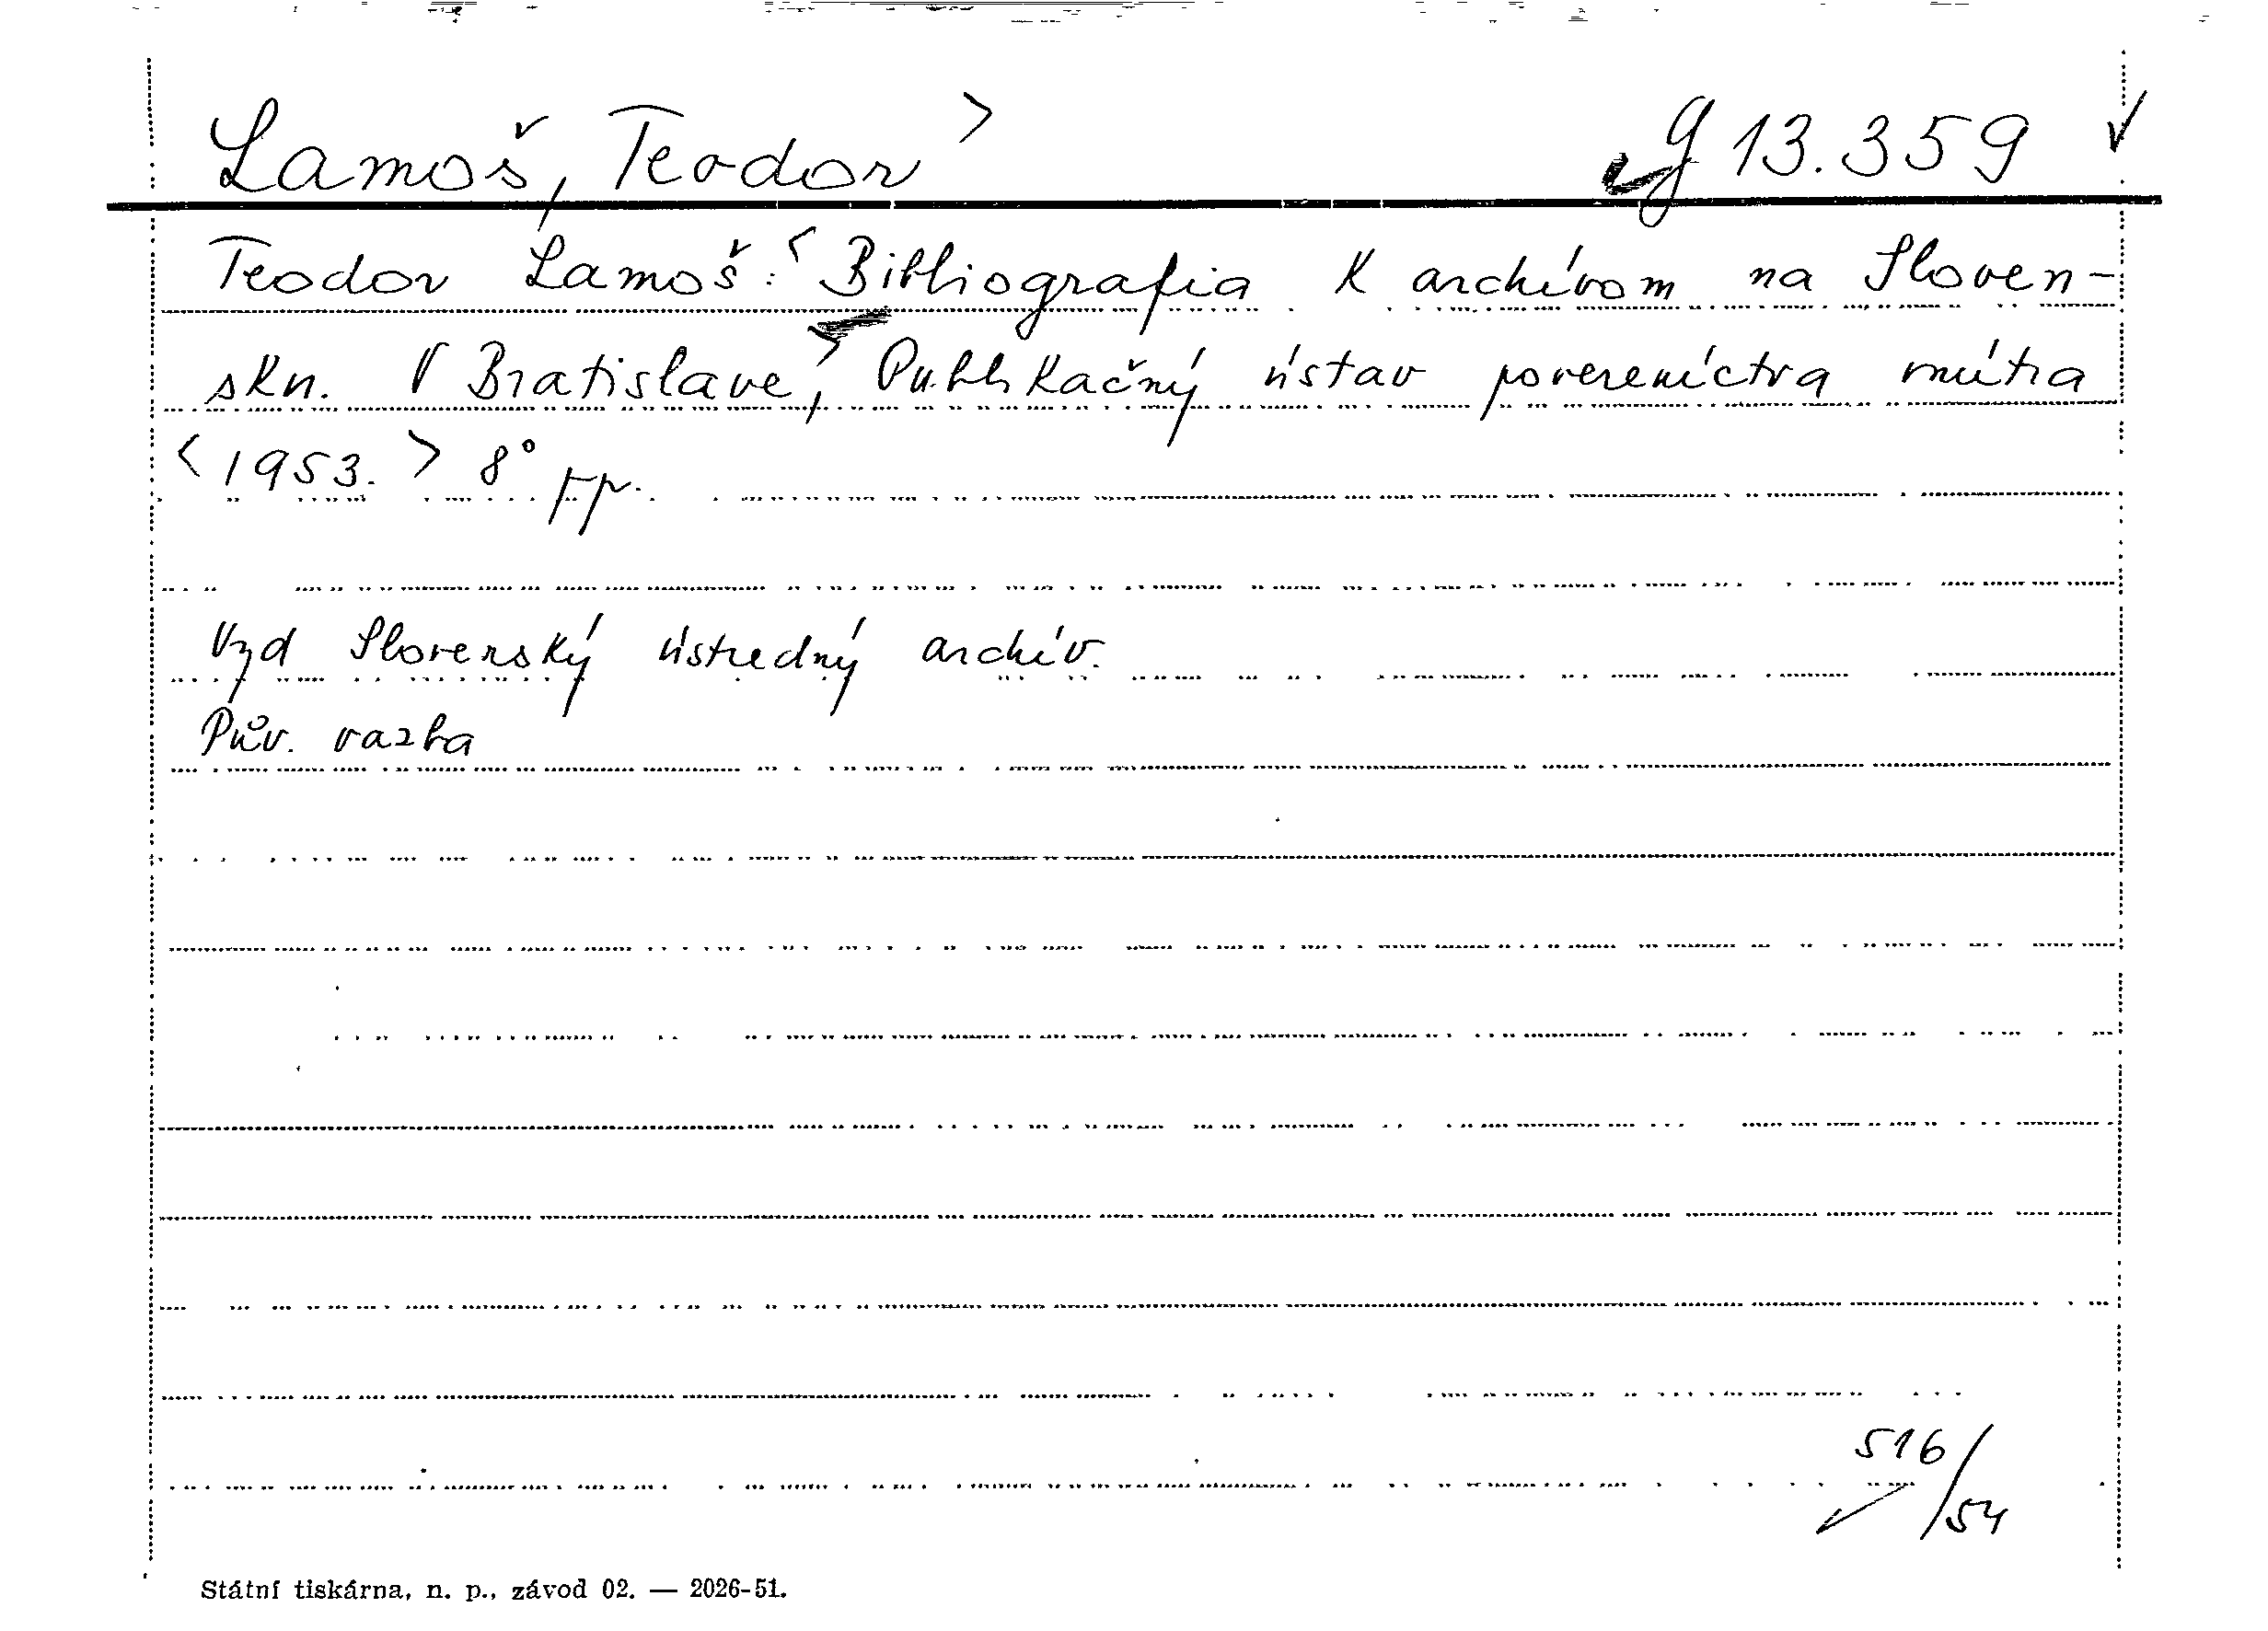 Lamoš, Teodor > g 13.359
Teodor Lamoš: <Bibliografia k archívom na Sloven-
sku. V Bratislave,> Publikačný ústav povereníctva vnútra
<1953.> 8° pp.
Vyd Slovenský ústredný archív.
Pův. vazba
516/54
Státní tiskárna, n. p., závod 02. — 2026-51.